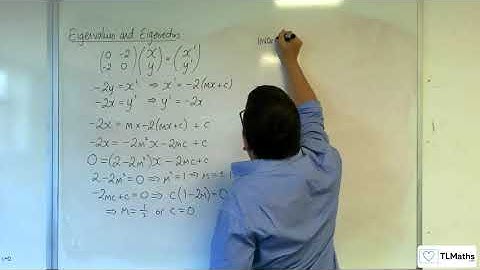 Eigenvalues and Eigenvectors
(0 -2
-2 0)(x
y) = (x'
y')
-2y = x' ⇒ x' = -2(mx+c)
-2x = y' ⇒ y' = -2x
-2x = m × -2(mx+c) + c
-2x = -2m²x - 2mc + c
0 = (2-2m²)x - 2mc + c
2-2m² = 0 ⇒ m² = 1 ⇒ m = ± 1
-2mc + c = 0 ⇒ c(1-2m) = 0
⇒ m = 1/2 or c = 0
TLMaths